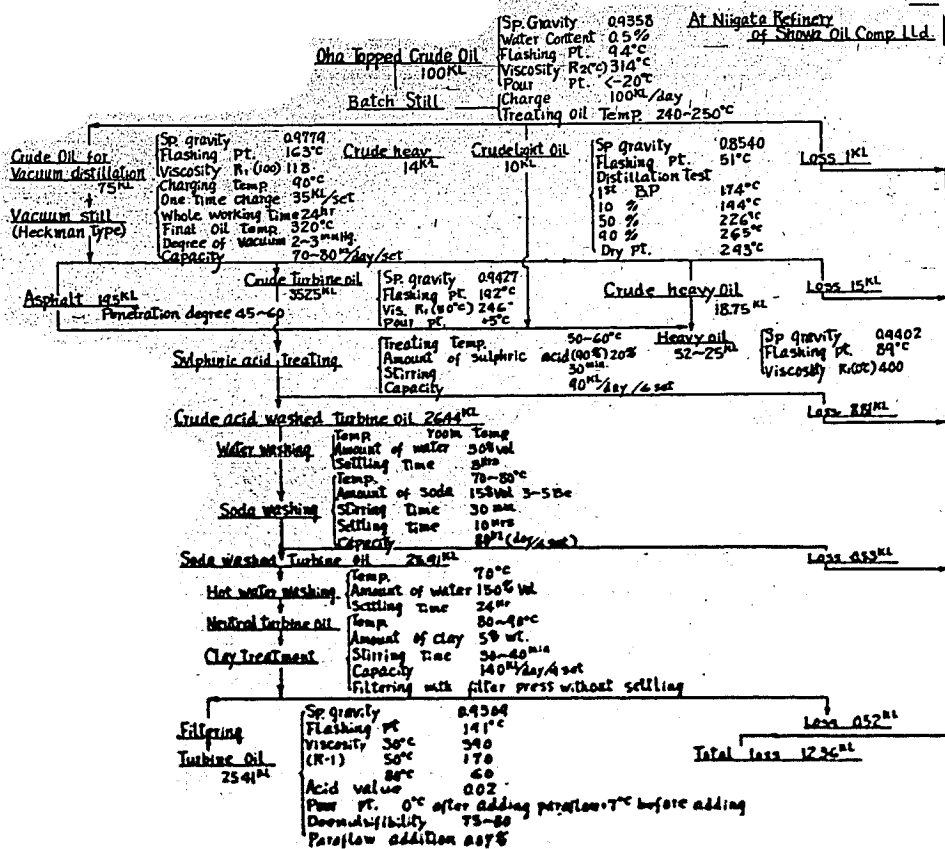 At Niigata Refinery
of Showa Oil Comp Lld.
Oha Topped Crude Oil
100KL
Sp. Gravity 0.9358
Water Content 0.5%
Flashing Pt. 94°C
Viscosity R2(°C) 314°C
Pour Pt. <-20°C
Charge 100KL/day
Treating Oil Temp. 240~250°C
Batch Still
Crude Oil for
Vacuum distillation
75KL
Sp. gravity 0.9779
Flashing Pt. 163°C
Viscosity R1(100) 118
Charging Temp 90°C
One time charge 35KL/set
Whole working time 24hr
Final Oil Temp. 320°C
Degree of Vacuum 2~3mmHg.
Capacity 70~80KL/day/set
Crude heav
14KL
Crude light Oil
10KL
Sp gravity 0.8540
Flashing Pt. 51°C
Distillation test
1st BP 174°C
10 % 194°C
50 % 226°C
90 % 265°C
Dry Pt. 293°C
Loss 1KL
Vacuum still
(Heckman Type)
Asphalt 19.5KL
Penetration degree 45~60
Crude Turbine oil
35.25KL
Sp. gravity 0.9427
Flashing pt. 192°C
Vis. R1(50°C) 246
Pour pt. +5°C
Crude heavy oil
18.75KL
Loss 1.5KL
Sulphiric acid Treating
Treating Temp. 50-60°C
Amount of sulphric acid (90%) 20%
Stirring 30min.
Capacity 90KL/day/4 set
Heavy oil
52~25KL
Sp gravity 0.9402
Flashing Pt. 89°C
Viscosity 400
Loss 8.81KL
Crude acid washed Turbine oil 26.44KL
Water washing
Temp room Temp
Amount of water 30% vol
Settling Time 3Hrs
Soda washing
Temp. 70~80°C
Amount of soda 15% Vol 3~5 Be
Stirring time 30 min.
Settling Time 10Hrs
Capacity 80KL(day/4 set)
Soda washed Turbine oil 25.91KL
Loss 0.53KL
Hot water washing
Temp. 70°C
Amount of water 150% Vol
Settling time 24Hr
Neutral turbine oil
Clay Treatment
Temp 80~90°C
Amount of clay 5% wt.
Stirring Time 30~40min
Capacity 140KL/day/4 set
Filtering with filter press without settling
Filtering
Turbine Oil
25.41KL
Sp. gravity 0.9369
Flashing Pt 191°C
Viscosity 30°C 590
(R-1) 50°C 170
80°C 60
Acid value 0.02
Pour Pt. 0°C after adding paraflow+7°C before adding
Demulsifibility 75~80
Paraflow addition
Loss 0.52KL
Total loss 12.36KL